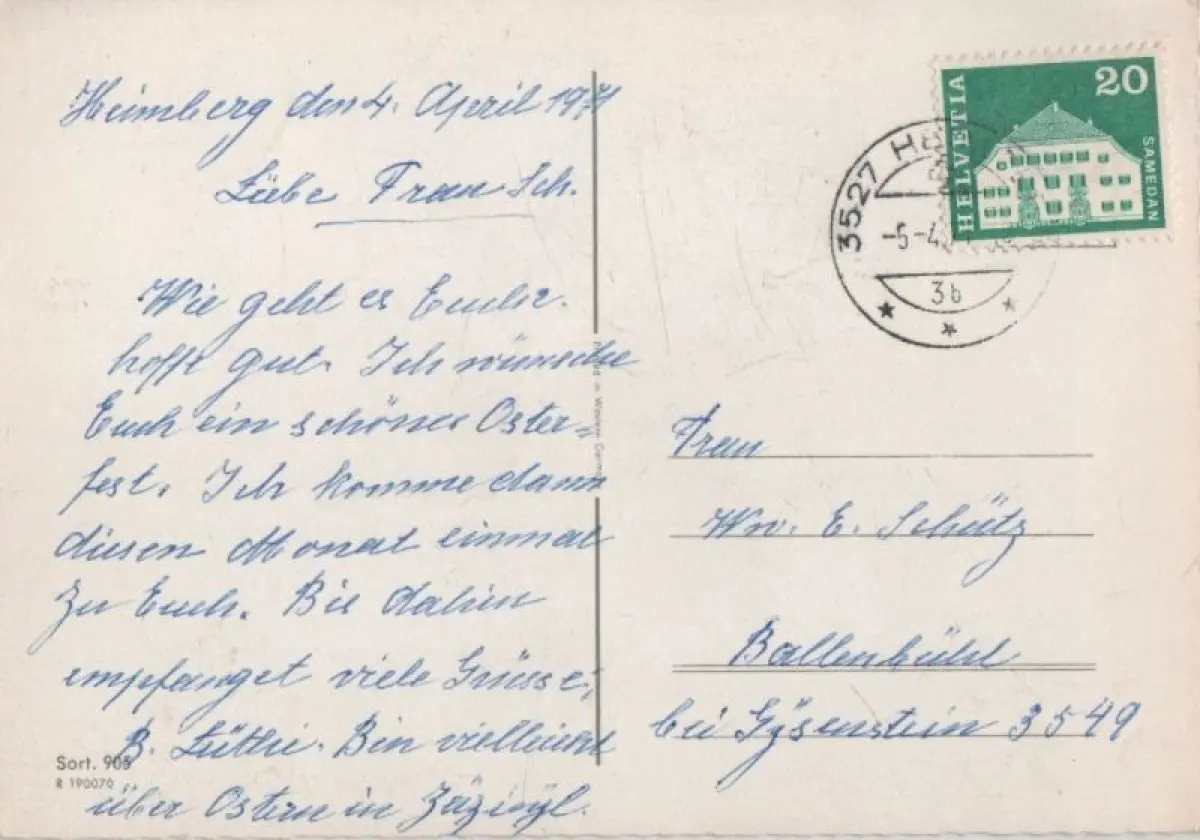 Heimberg den 4. April 1971
Liebe Frau Sch.
Wie geht es Euch.
hoffe gut. Ich wünsche
Euch ein schönes Oster=
fest. Ich komme dann
diesen Monat einmal
zu Euch. Bis dahin
empfanget viele Grüsse
B. Lüthi. Bin vielleicht
über Ostern in Zäziwyl.
Sort. 905
R 190070
HELVETIA
20
SAMEDAN
3527 HE
-5-4
3b
Frau
Ww. E. Schütz
Ballenbühl
bei Gysenstein 3549